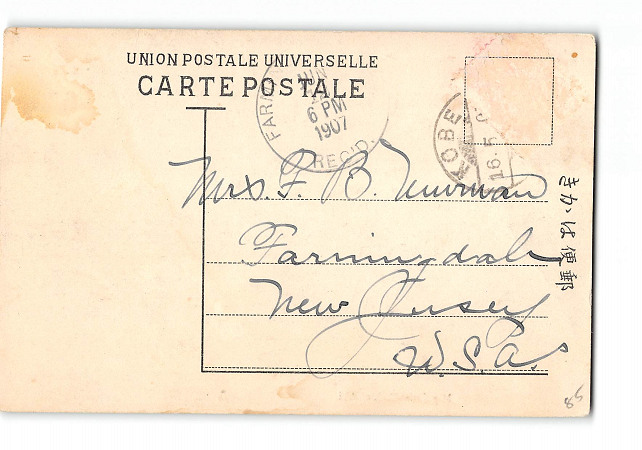 UNION POSTALE UNIVERSELLE
CARTE POSTALE
JUN
6 PM
1907
REC'D.
KOBE
16.5
Mrs. F. B. Newman
Farmingdale
New Jersey
U.S.A.
きかは便郵